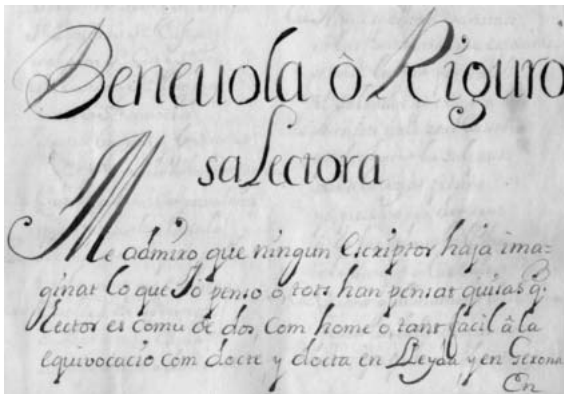 Beneuola ô Riguro
sa Lectora
Me admiro que ningun Escriptor haja ima=
ginat lo que Jo penso ô tots han pensat quisas q.
Lector es comu de dos com home ô tant facil â la
equivocacio com docte y docta en Lleyda y en Gerona
En